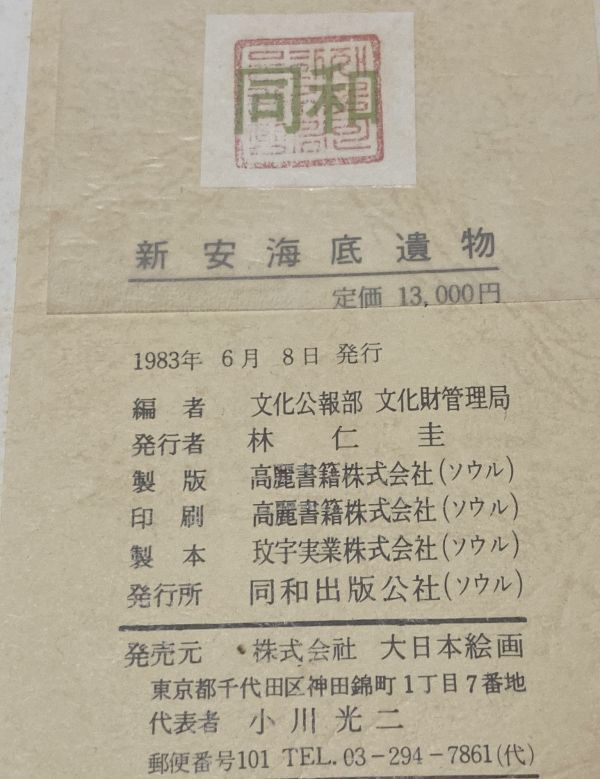 同和
新安海底遺物
定価 13,000円
1983年 6月 8日 発行
編者 文化公報部 文化財管理局
発行者 林仁圭
製版 高麗書籍株式会社(ソウル)
印刷 高麗書籍株式会社(ソウル)
製本 玟宇実業株式会社(ソウル)
発行所 同和出版公社(ソウル)
発売元 株式会社 大日本絵画
東京都千代田区神田錦町1丁目7番地
代表者 小川光二
郵便番号101 TEL. 03-294-7861(代)